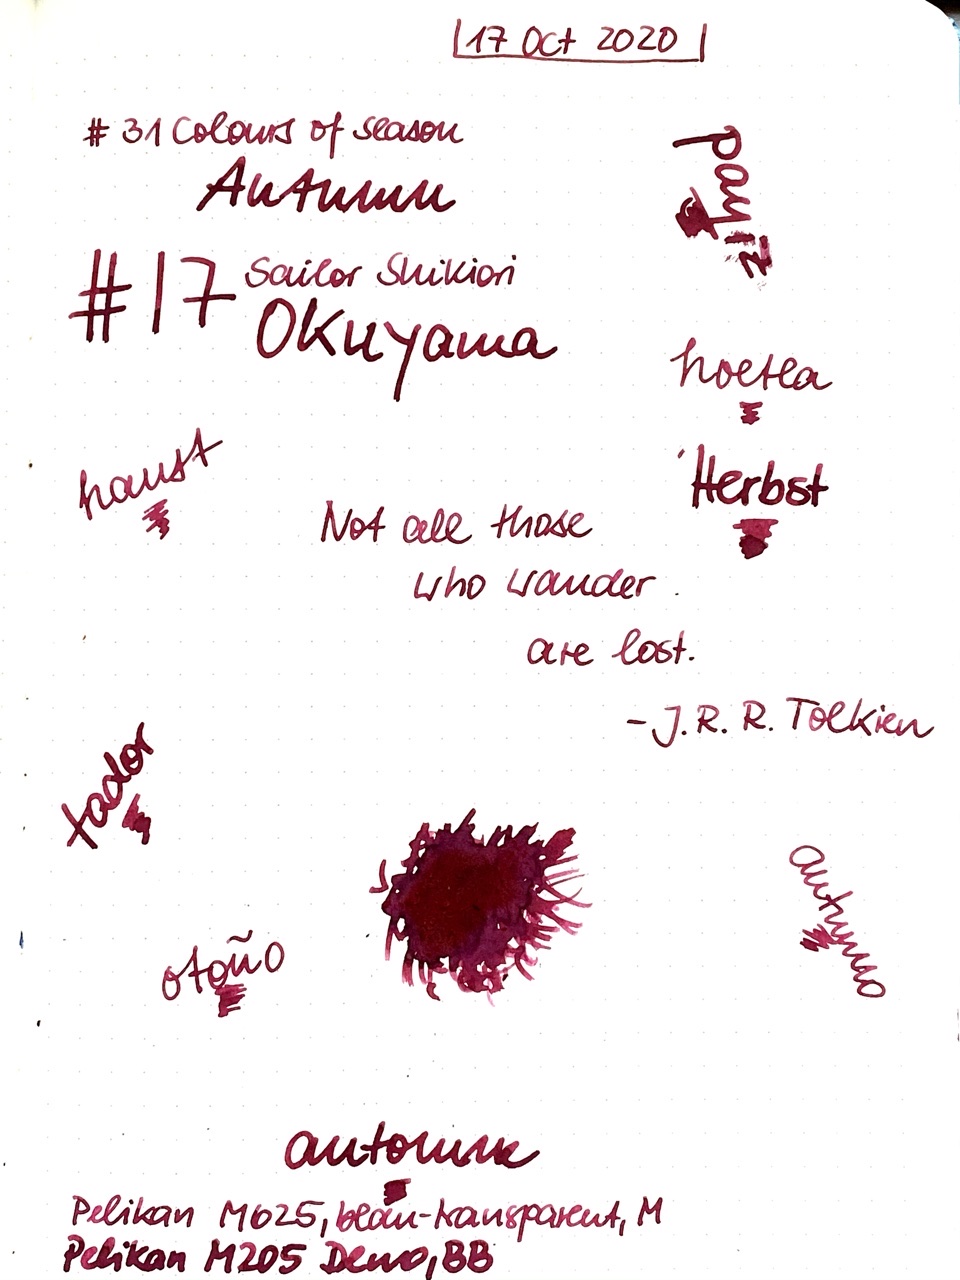 17 Oct 2020
# 31 Colours of season
Autumn
#17 Sailor Shikiori
Okuyama
payiz
hoetla
haust
Herbst
Not all those
who wander
are lost.
- J. R. R. Tolkien
tador
autunno
otoño
automne
Pelikan M625, blau-transparent, M
Pelikan M205 Demo, BB